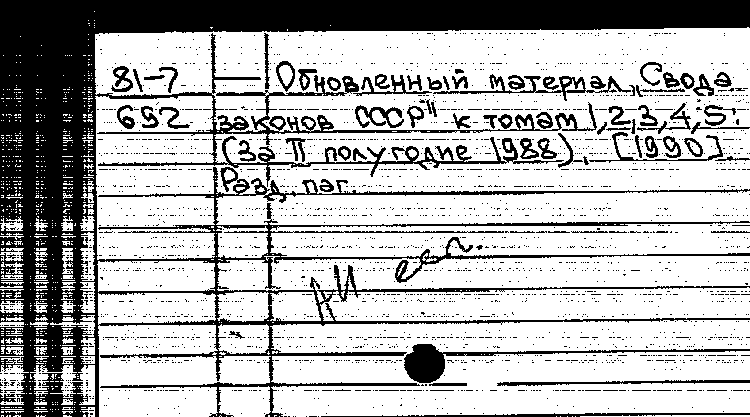 81-7 — Обновленный материал „Свода
692 законов СССР" к томам 1,2,3,4,5:
(За II полугодие 1988). [1990].
Разд. паг.